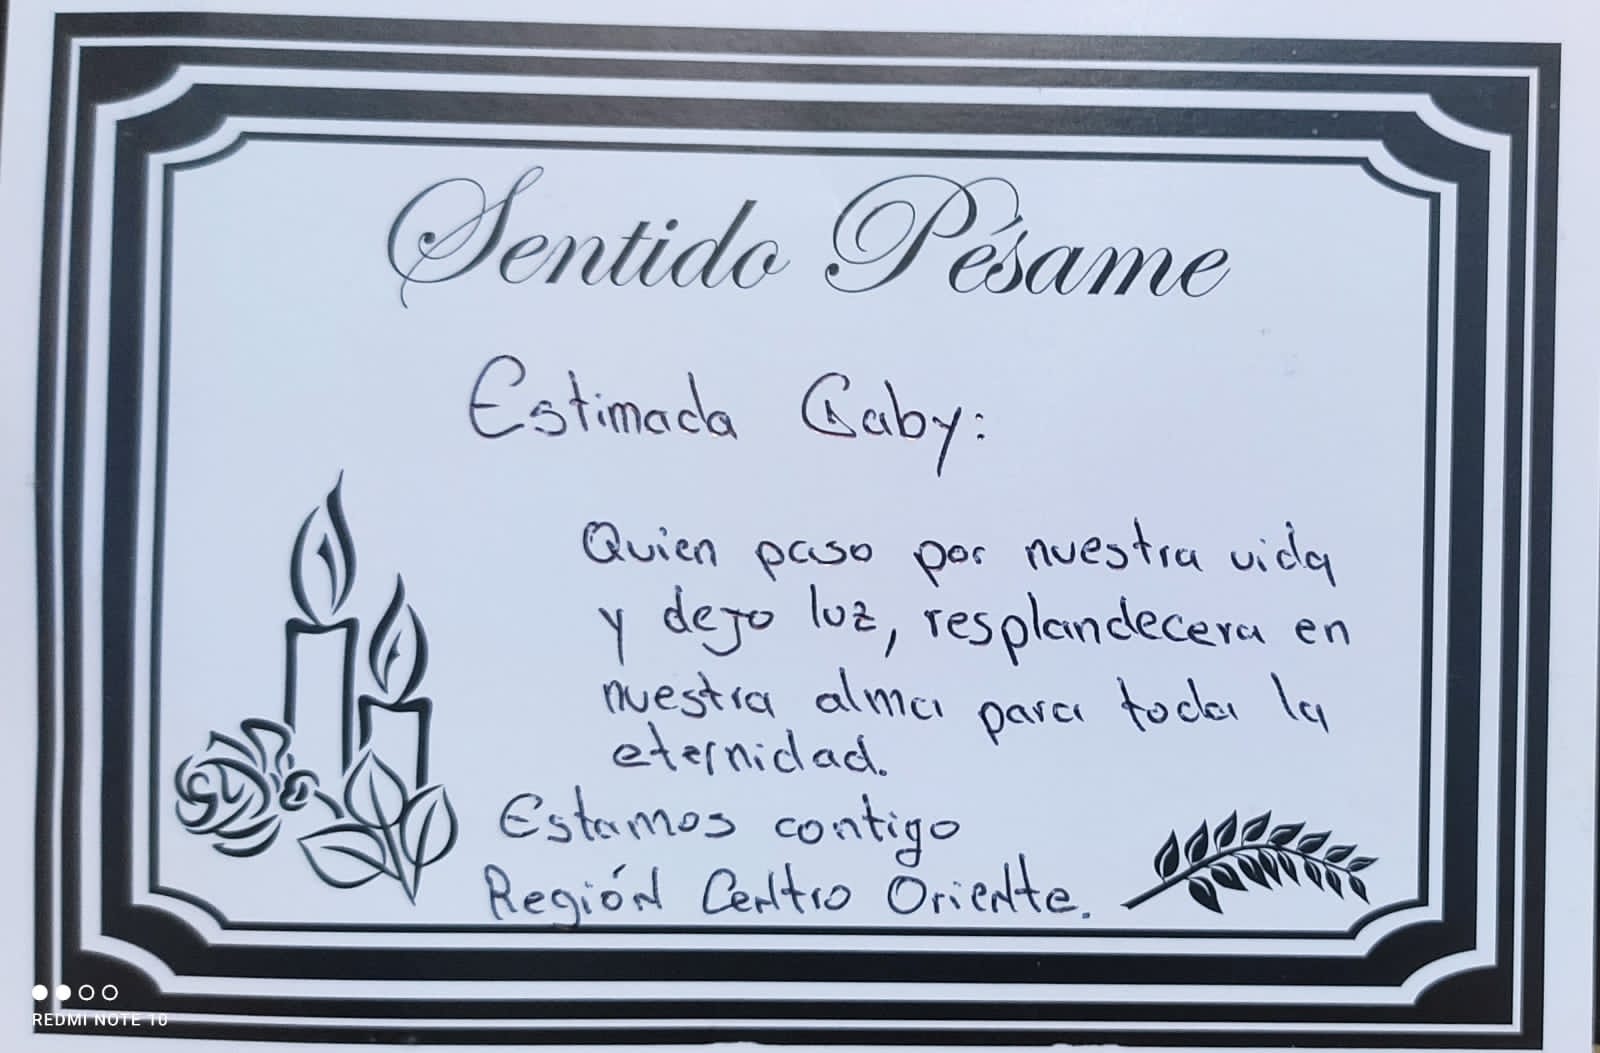 Sentido Pésame
Estimada Gaby:
Quien paso por nuestra vida
y dejo luz, resplandecera en
nuestra alma para toda la
eternidad.
Estamos contigo
Región Centro Oriente.
REDMI NOTE 10